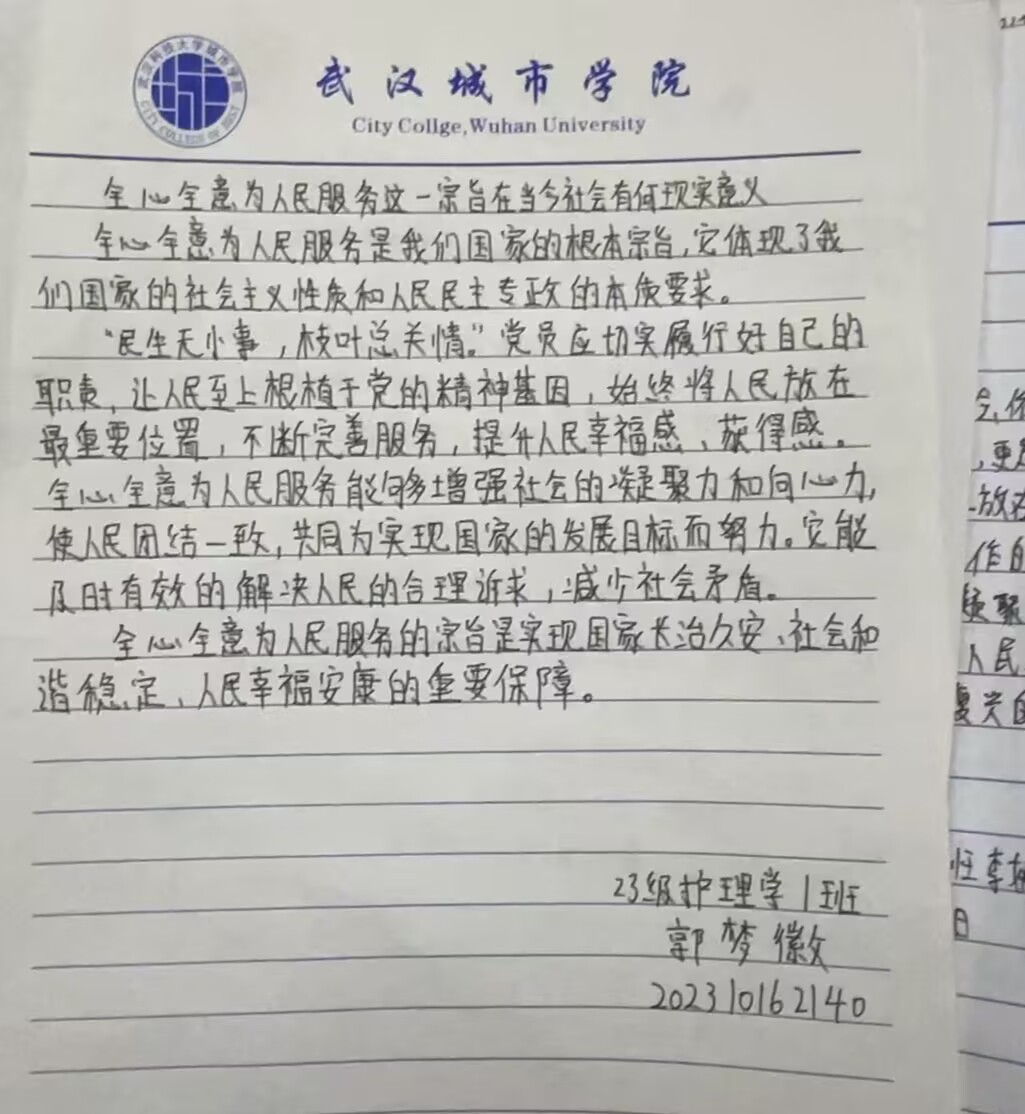 武汉城市学院
City Collge,Wuhan University
全心全意为人民服务这一宗旨在当今社会有何现实意义
全心全意为人民服务是我们国家的根本宗旨,它体现了我
们国家的社会主义性质和人民民主专政的本质要求。
“民生无小事，枝叶总关情。”党员应切实履行好自己的
职责,让人民至上根植于党的精神基因，始终将人民放在
最重要位置，不断完善服务，提升人民幸福感、获得感。
全心全意为人民服务能够增强社会的凝聚力和向心力,
使人民团结一致,共同为实现国家的发展目标而努力。它能
及时有效的解决人民的合理诉求，减少社会矛盾。
全心全意为人民服务的宗旨是实现国家长治久安、社会和
谐稳定、人民幸福安康的重要保障。
23级护理学1班
郭梦徽
202310162140
更
放在
作
聚
人民
复兴
班李
日